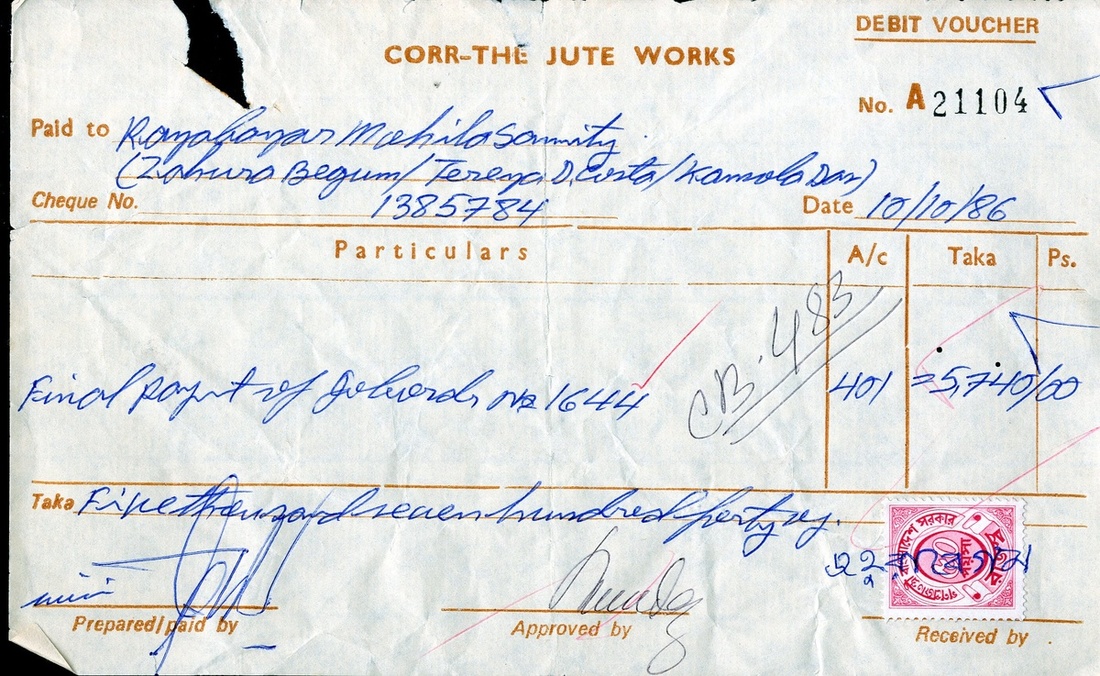 DEBIT VOUCHER
CORR-THE JUTE WORKS
No. A 21104
Paid to Mahila Samity
(Zohura Begum/ Tereya D. Costa/ Kamola Das)
Cheque No. 1385784 Date 10/10/86
Particulars A/c Taka Ps.
CB. 483
Final paynt of No 1644 401 =5,740/00
Taka Five thousand seven hundred forty
বাংলাদেশ সরকার
Prepared/paid by Approved by Received by